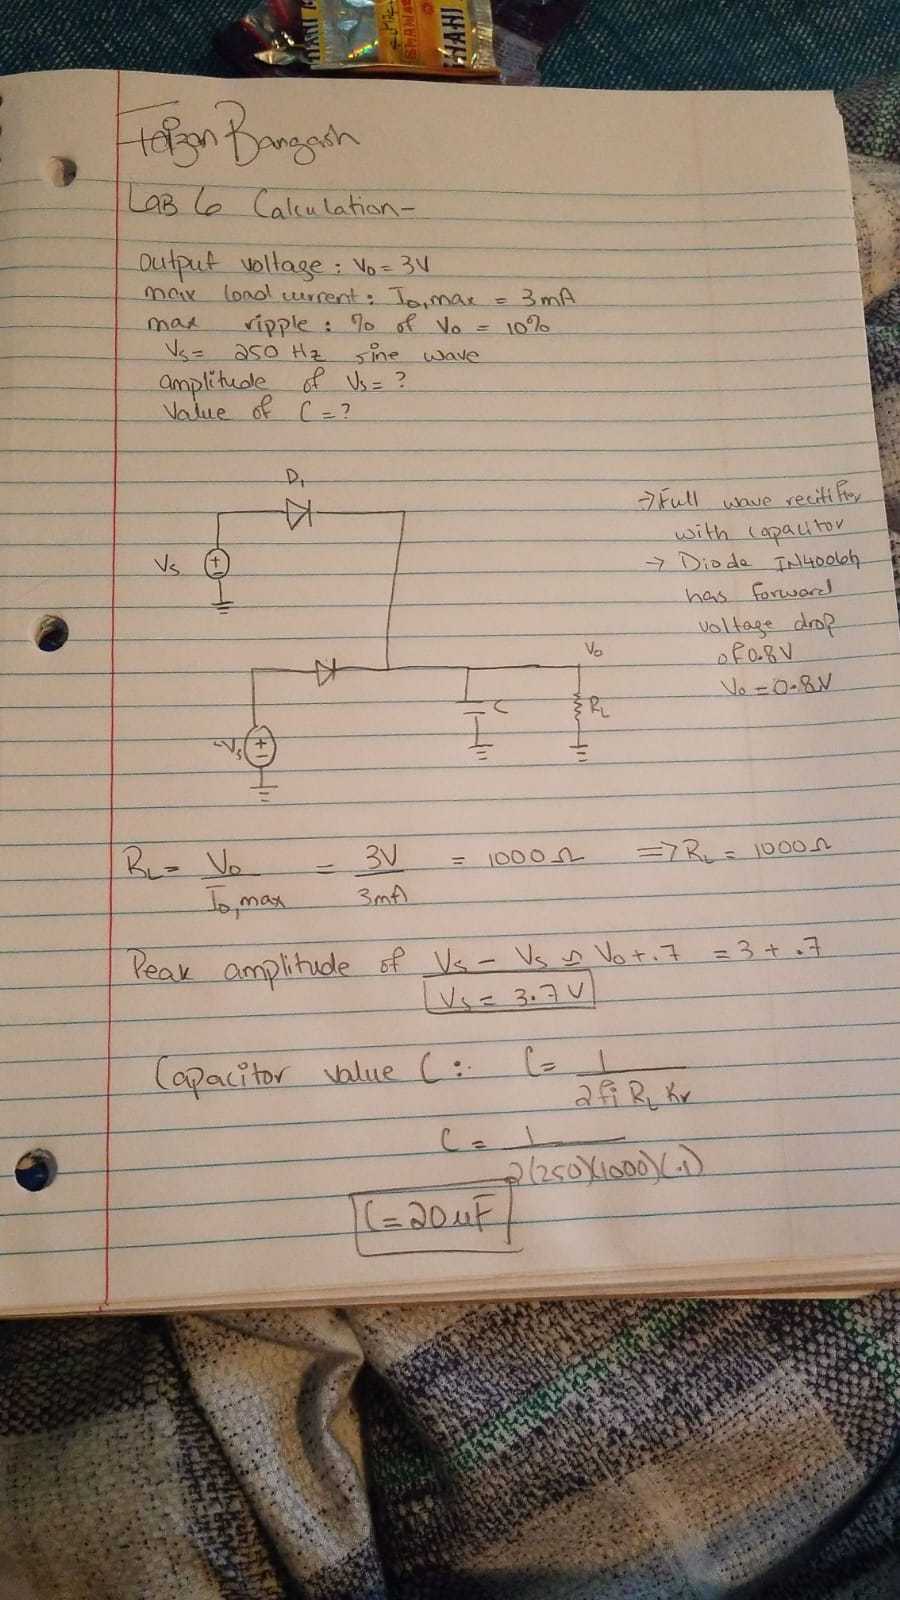 SHAHI
Faizan Bangash
LAB 6 Calculation-
output voltage : Vo = 3V
max load current : Io,max = 3mA
max ripple : % of Vo = 10%
Vs = 250 Hz sine wave
amplitude of Vs = ?
Value of C = ?
D1
Vs
→ Full wave recitifier
with capacitor
→ Diode IN4006h
has forward
voltage drop
of 0.8V
Vo = 0.8V
Vo
-Vs
C
RL
RL = Vo / Io,max = 3V / 3mA = 1000Ω => RL = 1000Ω
Peak amplitude of Vs - Vs ≃ Vo + .7 = 3 + .7
Vs = 3.7V
Capacitor value C : C = 1 / 2fi RL Kr
C = 1 / 2(250)(1000)(.1)
C = 20uF